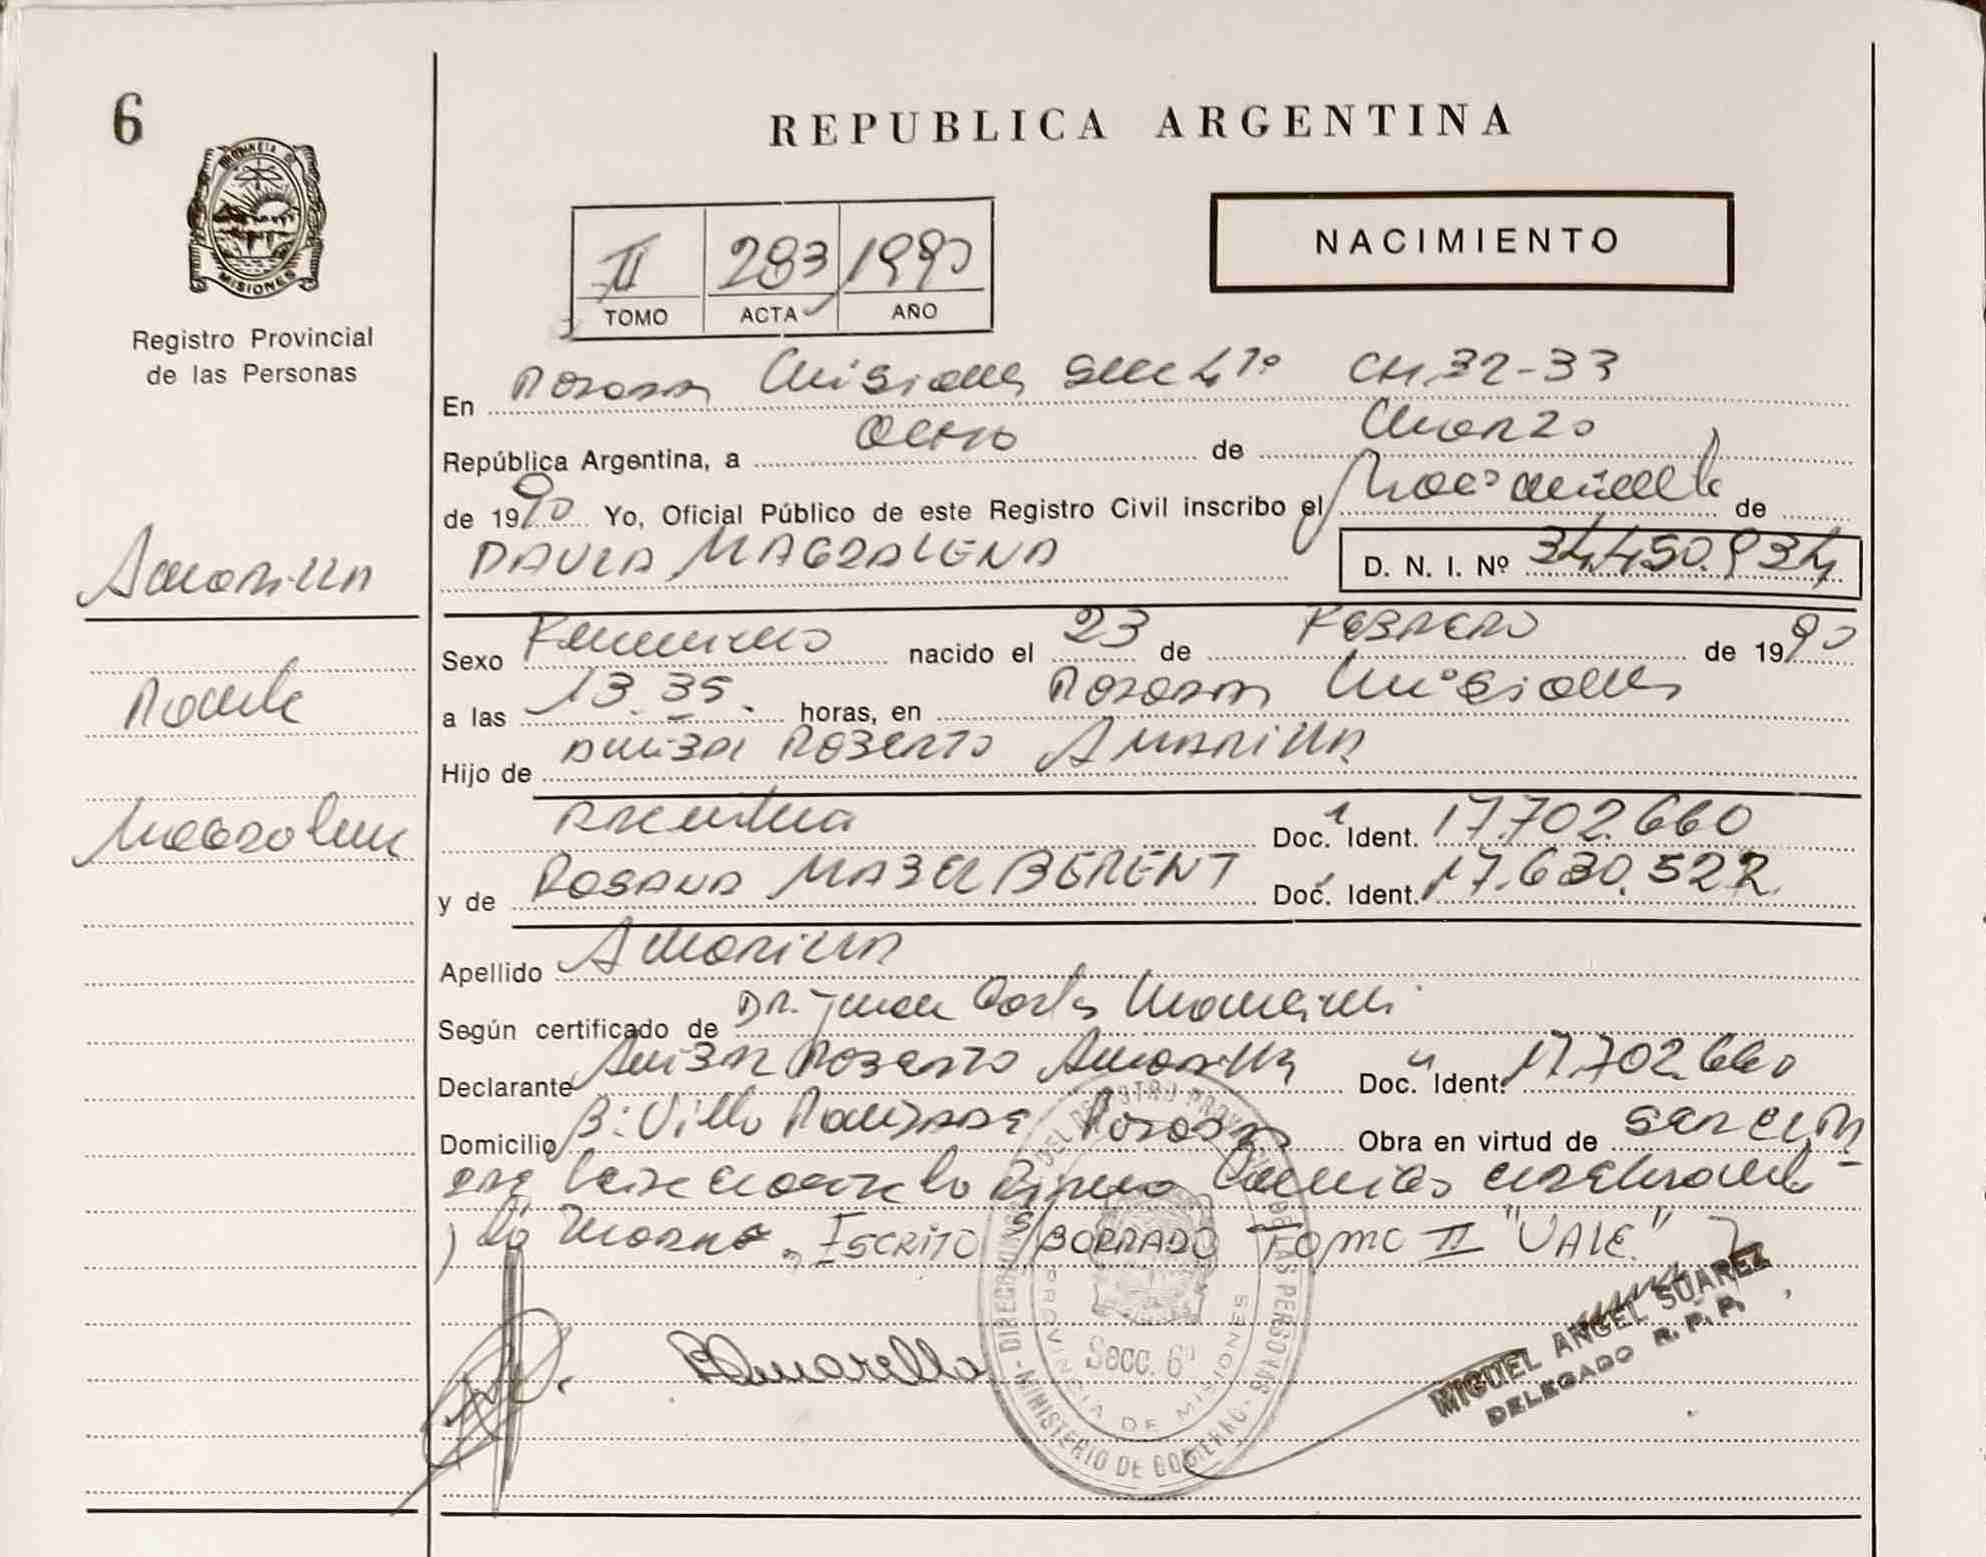 6
REPUBLICA ARGENTINA
PROVINCIA DE MISIONES
Registro Provincial
de las Personas
II 283 1990
TOMO ACTA AÑO
NACIMIENTO
En Posadas Misiones Secc 4ta CH. 32-33
República Argentina, a Ocho de Marzo
de 1990 Yo, Oficial Público de este Registro Civil inscribo el Nacimiento de
PAULA MAGDALENA
D. N. I. Nº 34.450.934
Amarilla
Paula
Magdalena
Sexo Femenino nacido el 23 de FEBRERO de 1990
a las 13.35. horas, en Posadas Misiones
Hijo de ROBERTO AMARILLA
Argentina Doc. Ident. 17.702.660
y de ROSANA MABEL BERENT Doc. Ident. 17.630.522
Apellido Amarilla
Según certificado de DR. Juan Carlos
Declarante Roberto Amarilla Doc. Ident. 17.702.660
Domicilio B: Villa Posadas Obra en virtud de
ESCRITO S/BORRADO TOMO II "VALE"
Amarilla
DIRECCION DEL REGISTRO PROVINCIAL DE LAS PERSONAS - MINISTERIO DE GOBIERNO
PROVINCIA DE MISIONES
Secc. 6ª
MIGUEL ANGEL SUAREZ
DELEGADO R. P. P.